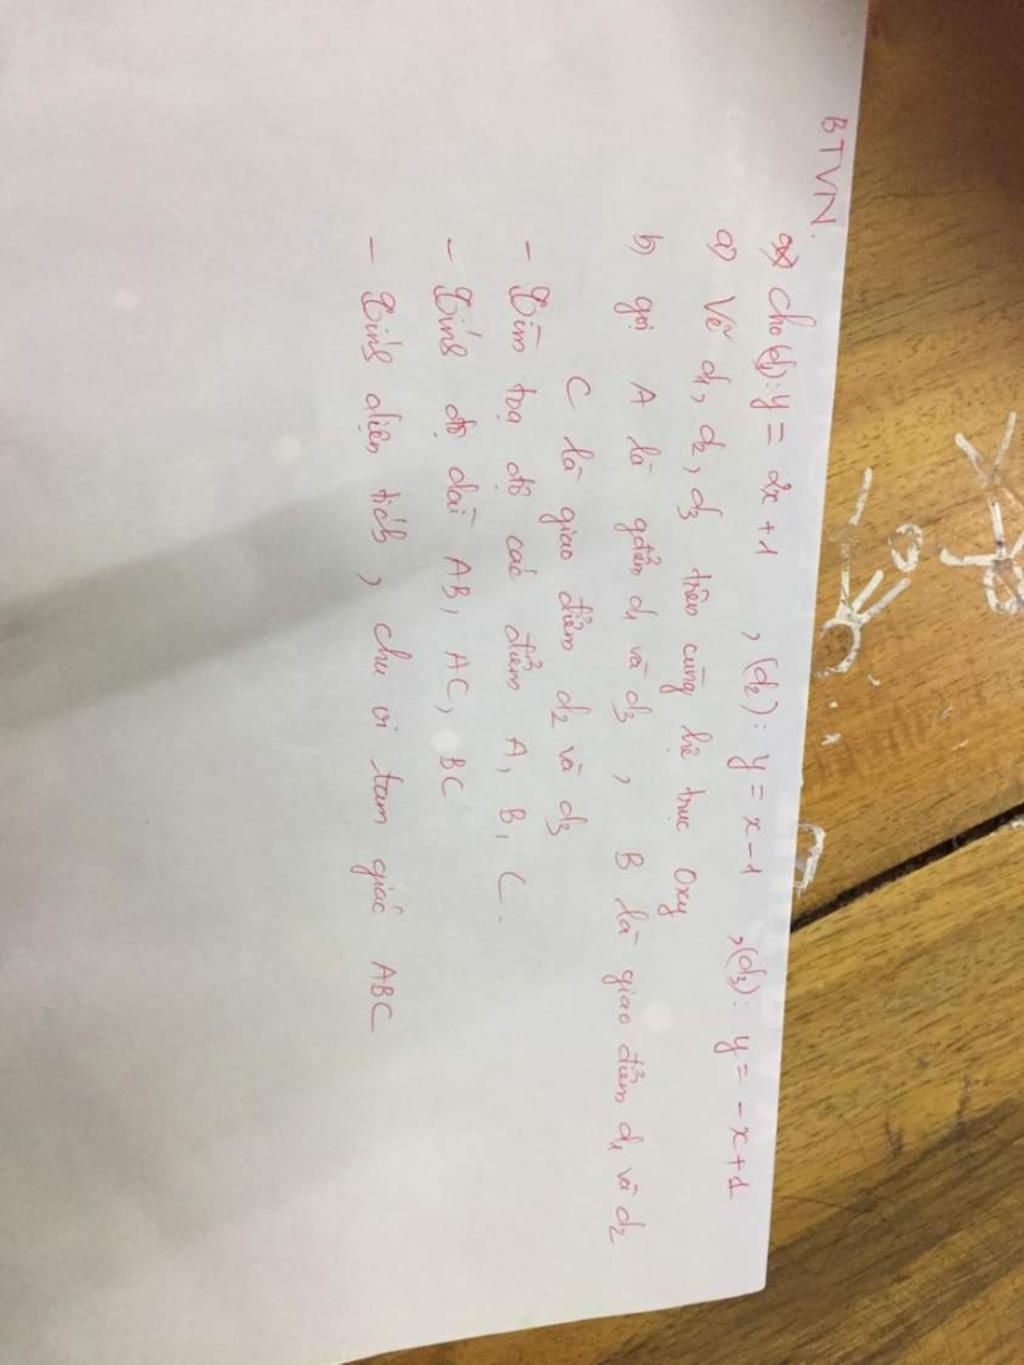 BTVN.
Cho (d1): y = 2x + 1 , (d2): y = x - 1 , (d3): y = -x + 1
a) Vẽ d1, d2, d3 trên cùng hệ trục Oxy
b) gọi A là gđiểm d1 và d3 , B là giao điểm d1 và d2
C là giao điểm d2 và d3
- Tìm toạ độ các điểm A, B, C.
- Tính độ dài AB, AC, BC
- Tính diện tích , chu vi tam giác ABC